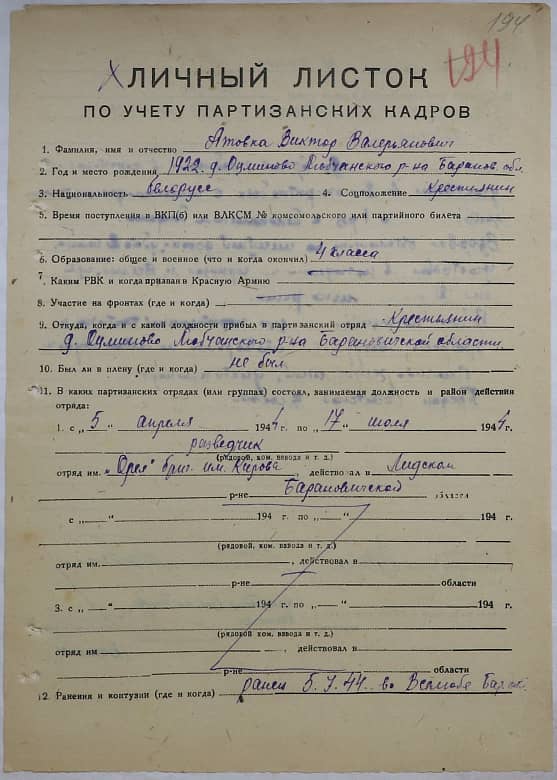 194
194
ЛИЧНЫЙ ЛИСТОК
ПО УЧЕТУ ПАРТИЗАНСКИХ КАДРОВ
1. Фамилия, имя и отчество Атовка Виктор Валерьянович
2. Год и место рождения 1922 д. Осмигово Любчанского р-на Баранов. обл.
3. Национальность белорусс 4. Соцположение Крестьянин
5. Время поступления в ВКП(б) или ВЛКСМ № комсомольского или партийного билета
6. Образование: общее и военное (что и когда окончил) 4 класса
7. Каким РВК и когда призван в Красную Армию
8. Участие на фронтах (где и когда)
9. Откуда, когда и с какой должности прибыл в партизанский отряд Крестьянин
д. Осмигово Любчанского р-на Барановичской области
10. Был ли в плену (где и когда) не был
11. В каких партизанских отрядах (или группах) состоял, занимаемая должность и район действия
отряда:
1. с „5“ апреля 1944 г. по „17“ июля 1944 г.
разведчик
(рядовой, ком. взвода и т. д.)
отряд им. „Орел“ бриг. им. Кирова, действовал в Лидском
р-не Барановичской области
с „ “ 194 г. по „ “ 194 г.
(рядовой, ком. взвода и т. д.)
отряд им. , действовал в
р-не области
3. с „ “ 194 г. по „ “ 194 г.
(рядовой ком. взвода и т. д.)
отряд им , действовал в
р-не области
12. Ранения и контузии (где и когда) ранен 5.V.44